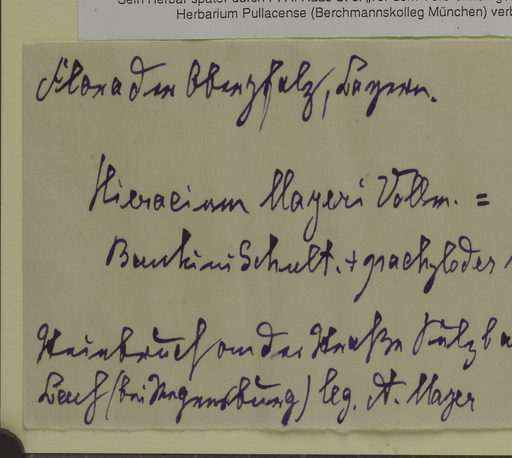 Herbarium Pullacense (Berchmannskolleg München) verb
Flora der Oberpfalz, Bayern.
Hieracium Mayeri Vollm. =
Bauhini Schult. + brachylodes
Steinbruch an der Straße Sulzba
Lach (bei Regensburg) leg. A. Mayer